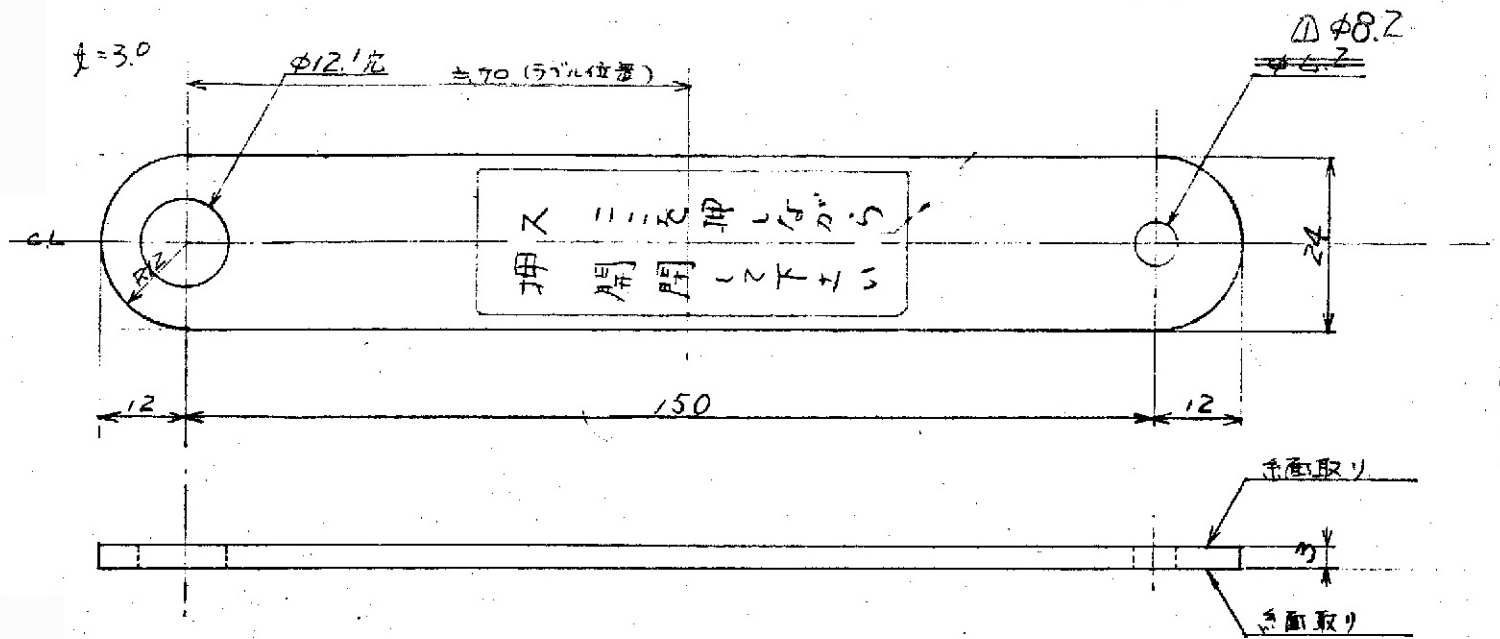 t=3.0
φ12.1穴
≒70 (ラベル位置)
△1 φ8.2
φ6.2
CL
R12
押ス ミを押しながら
押 開閉して下さい
24
12
150
12
糸面取り
3
糸面取り